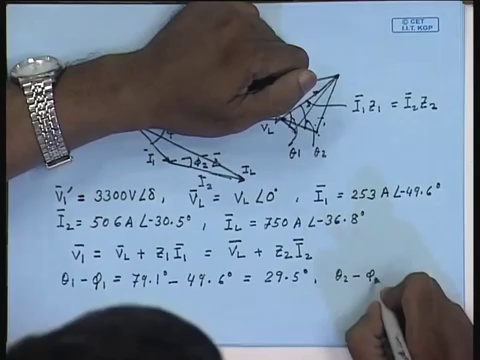 © CET
I.I.T. KGP
Ī₁Z₁ = Ī₂Z₂
V_L
θ₁ θ₂
Ī₁ φ₂
I₂ I_L
V̄₁' = 3300V∠δ, V̄_L = V_L∠0°, Ī₁ = 253A∠-49.6°
Ī₂ = 506A∠-30.5°, Ī_L = 750A∠-36.8°
V̄₁ = V̄_L + Z₁Ī₁ = V̄_L + Z₂Ī₂
θ₁-φ₁ = 79.1° - 49.6° = 29.5°, θ₂-φ₂